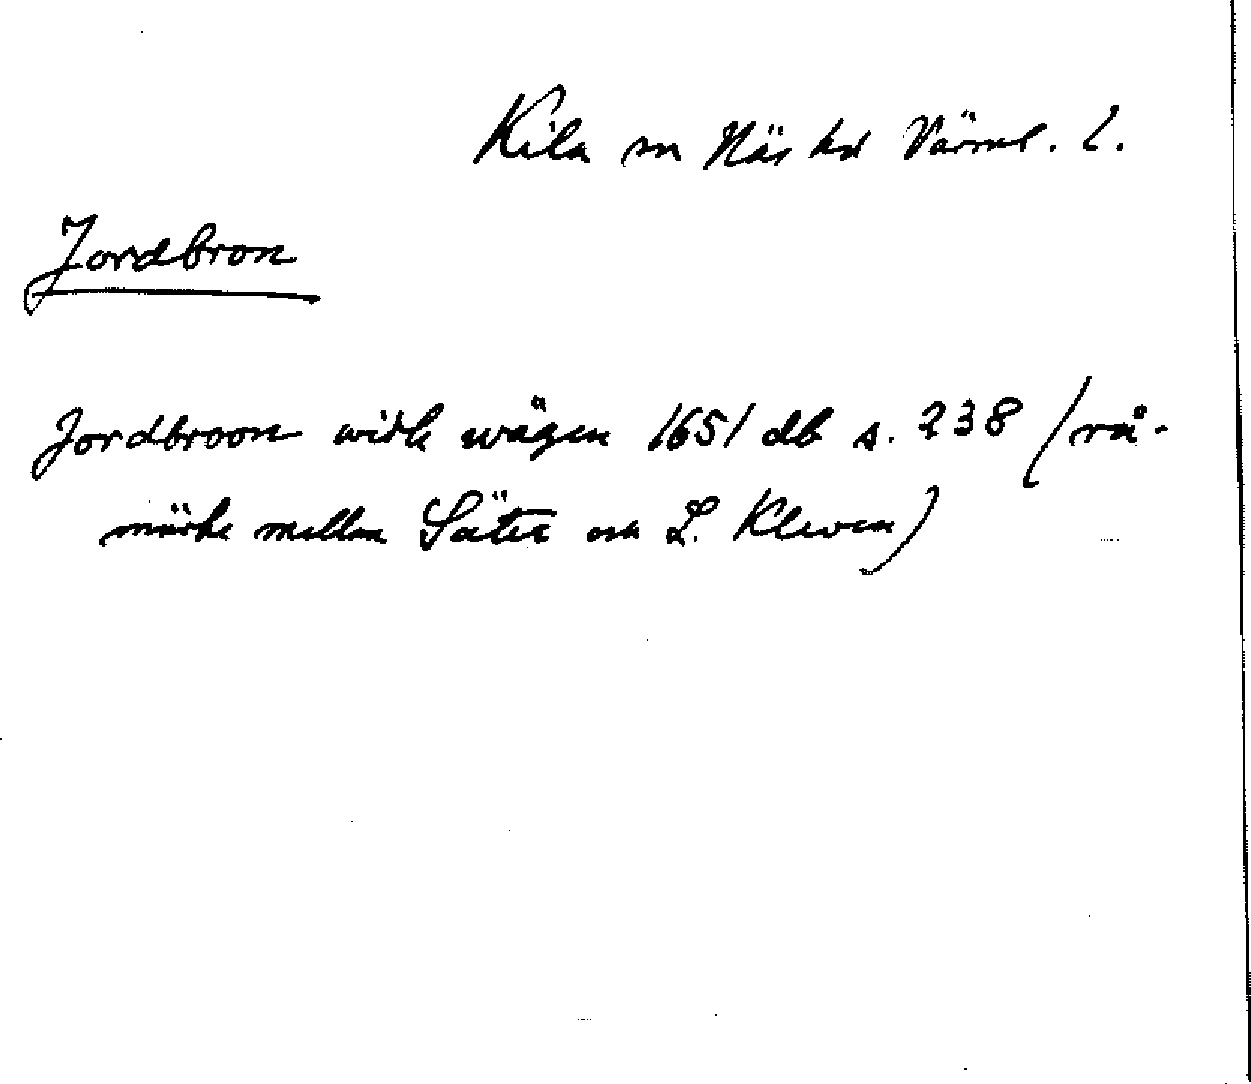 Kila sn Näs hd Värml. l.
Jordbron
Jordbroon widh wägen 1651 db s. 238 (rå-
märke mellan Säter och L. Kleven)